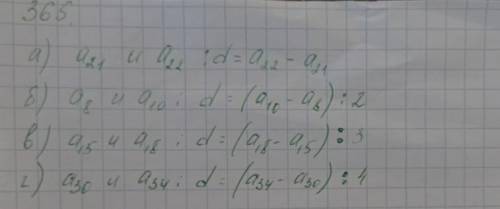 365.
а) a₂₁ и a₂₂ : d = a₂₂ - a₂₁
б) a₈ и a₁₀ : d = (a₁₀ - a₈) : 2
в) a₁₅ и a₁₈ : d = (a₁₈ - a₁₅) : 3
г) a₃₀ и a₃₄ : d = (a₃₄ - a₃₀) : 4